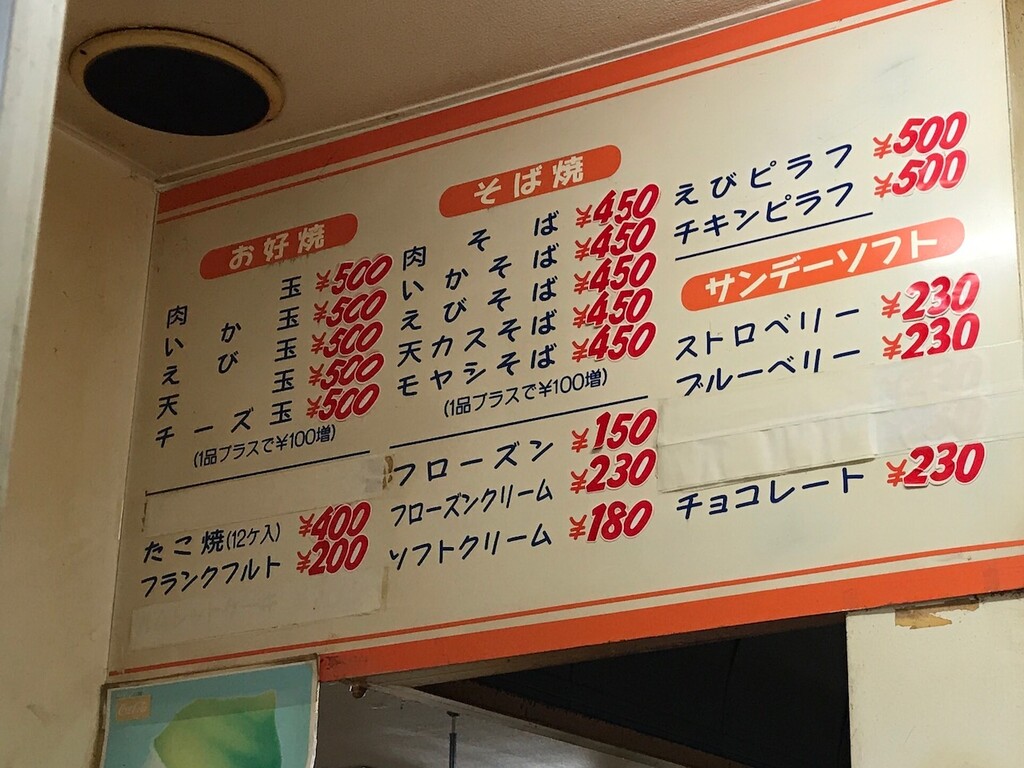 お好焼
肉玉 ¥500
いか玉 ¥500
えび玉 ¥500
天玉 ¥500
チーズ玉 ¥500
(1品プラスで¥100増)
たこ焼(12ケ入) ¥400
フランクフルト ¥200
そば焼
肉そば ¥450
いかそば ¥450
えびそば ¥450
天カスそば ¥450
モヤシそば ¥450
(1品プラスで¥100増)
フローズン ¥150
フローズンクリーム ¥230
ソフトクリーム ¥180
えびピラフ ¥500
チキンピラフ ¥500
サンデーソフト
ストロベリー ¥230
ブルーベリー ¥230
チョコレート ¥230